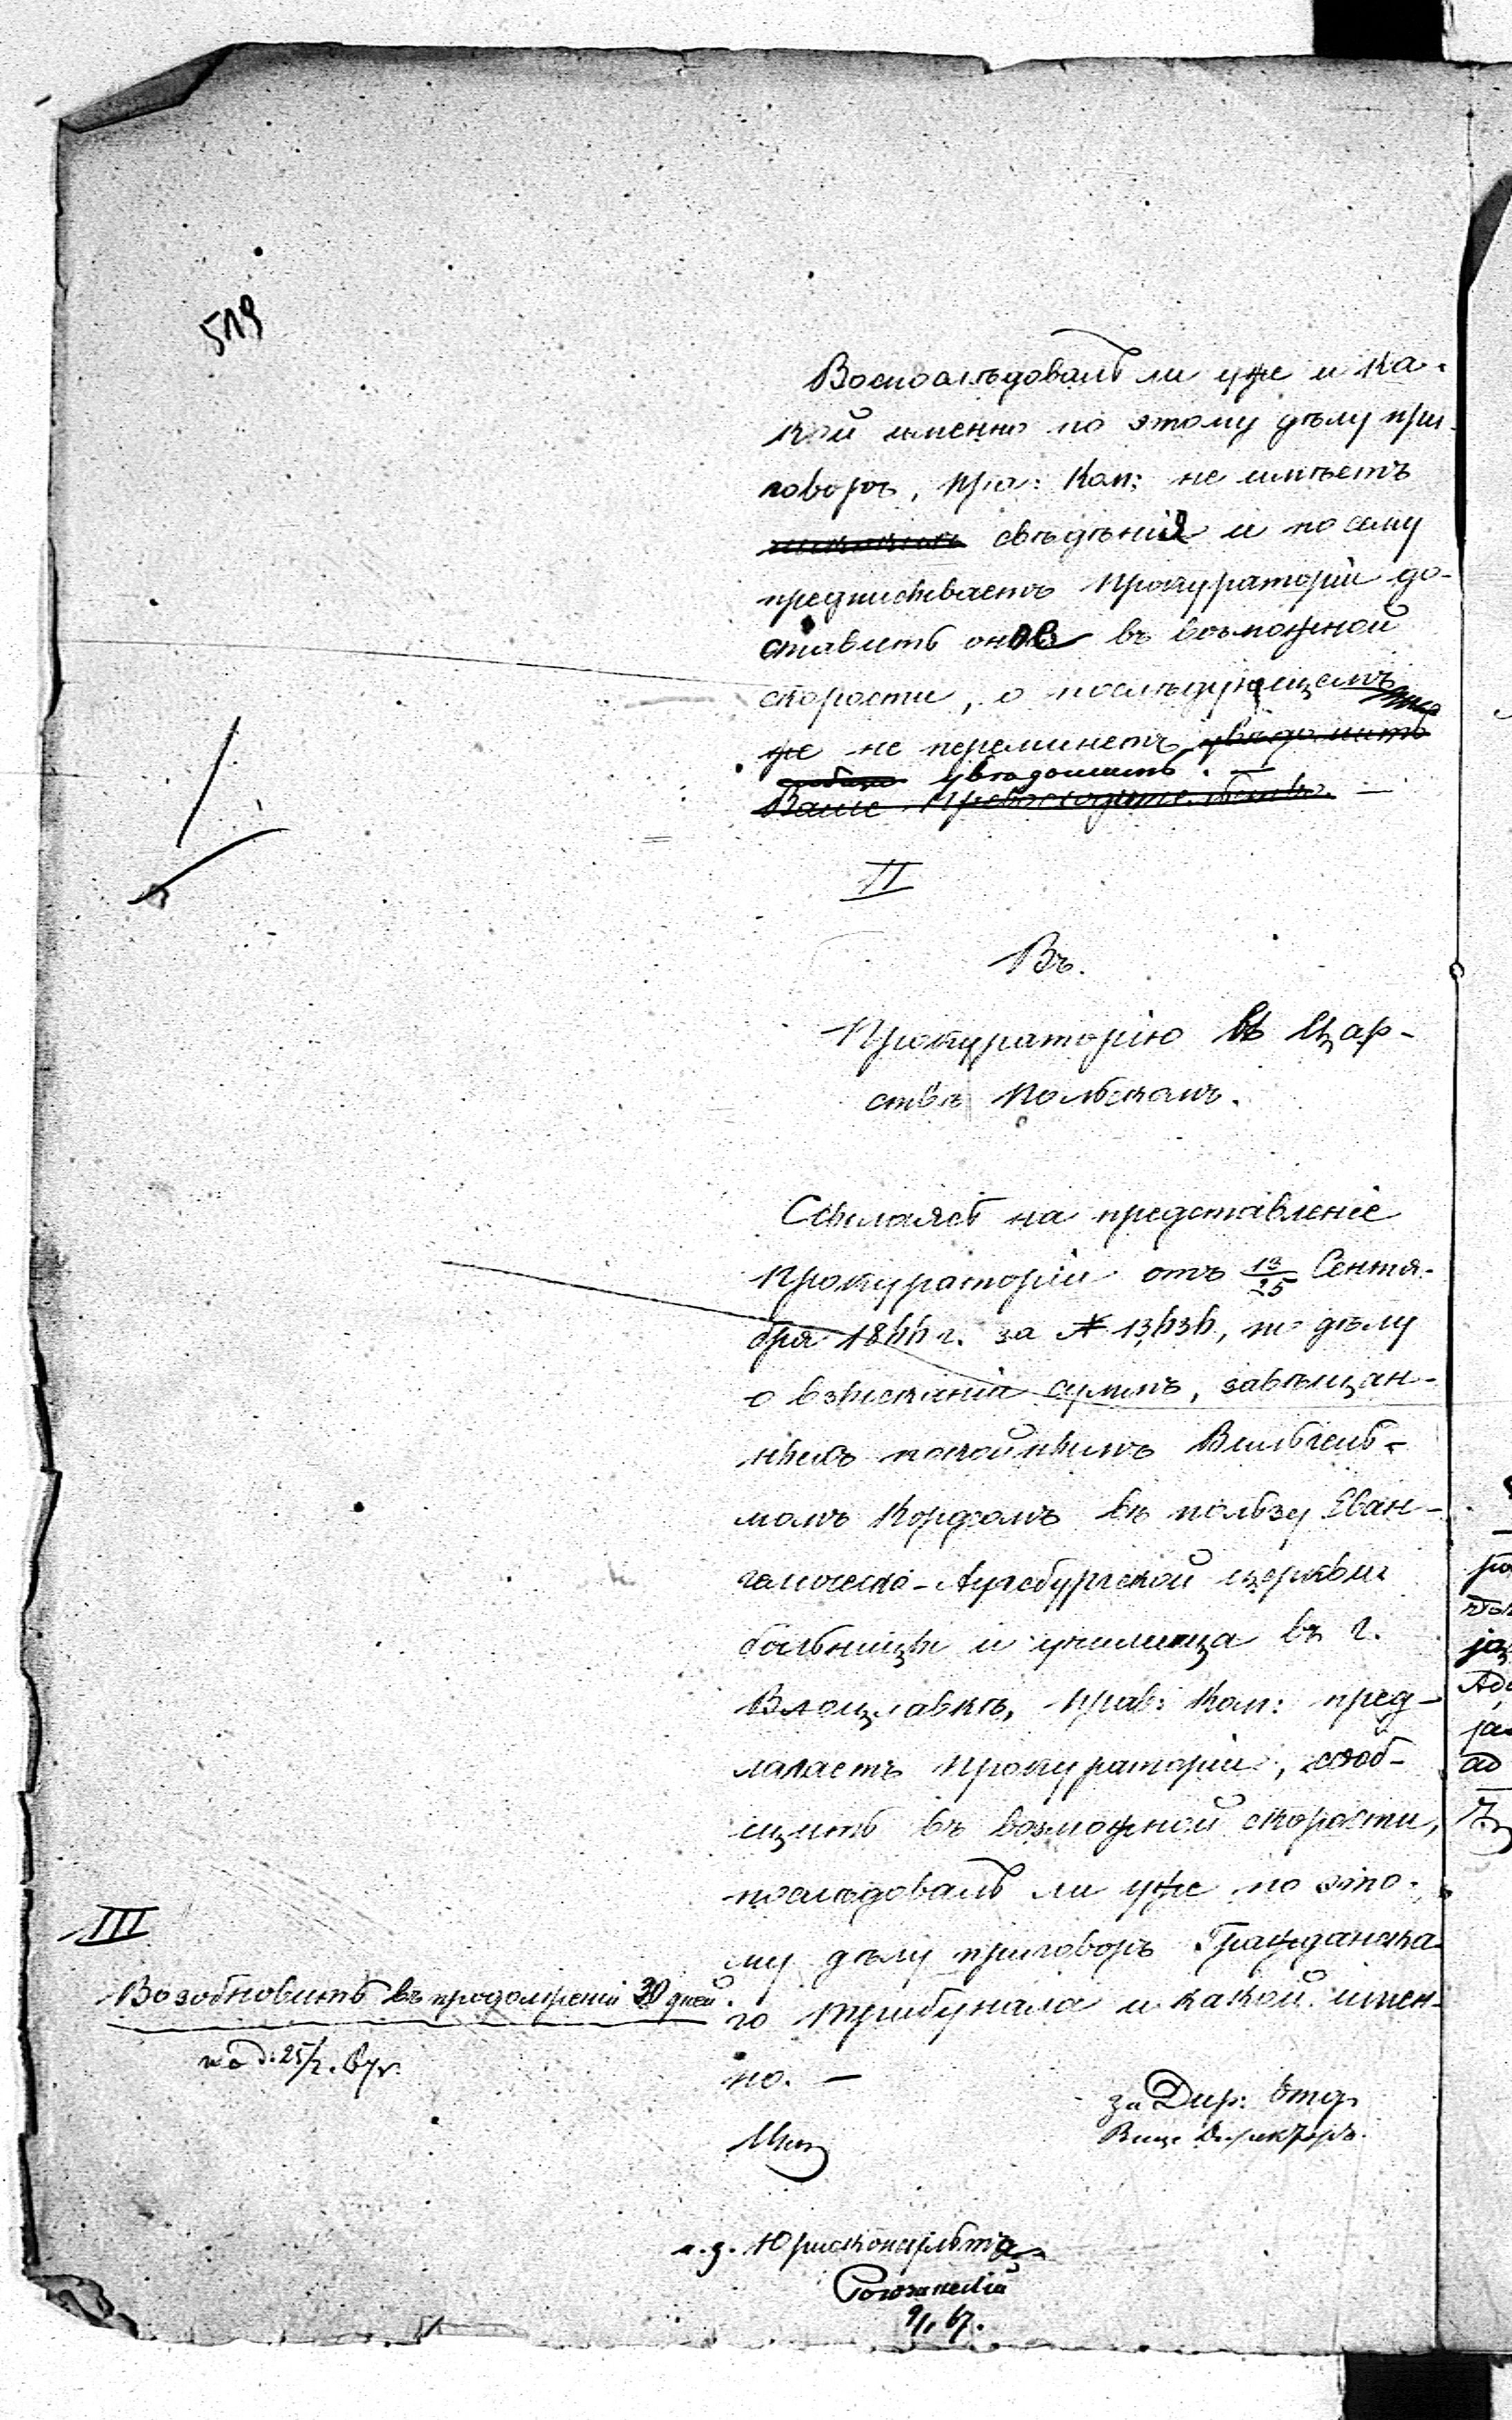 519
Воспослѣдовалъ ли уже и ка-
кой именно по этому дѣлу при-
говоръ, Пра: Ком: не имѣетъ
свѣдѣнія и по сему
предписываетъ Прокураторіи до-
ставить оное въ возможной
скорости, о послѣдующемъ
же не переминетъ увѣдомить
увѣдомить. —
Ваше Превосходительство. —
II
Въ.
Прокураторію въ Цар-
ствѣ Польскомъ.
Ссылаясь на представленіе
Прокураторіи отъ 13/25 Сентя-
бря 1866 г. за № 13636, по дѣлу
о взысканіи суммъ, завѣщан-
ныхъ покойнымъ Вильгель-
момъ Корфомъ въ пользу Еван-
гелическо-Аугсбургской церкви
больницы и училища въ г.
Влоцлавкѣ, Прав: Ком: пред-
лагаетъ Прокураторіи, сооб-
щить въ возможной скорости,
послѣдовалъ ли уже по это-
му дѣлу приговоръ Гражданска-
го Трибунала и какой имен-
но. —
за Дир: Отд.
Вице Директоръ.
и. д. Юрисконсульта
9/1 67.
III
Возобновить въ продолженіи 30 дней.